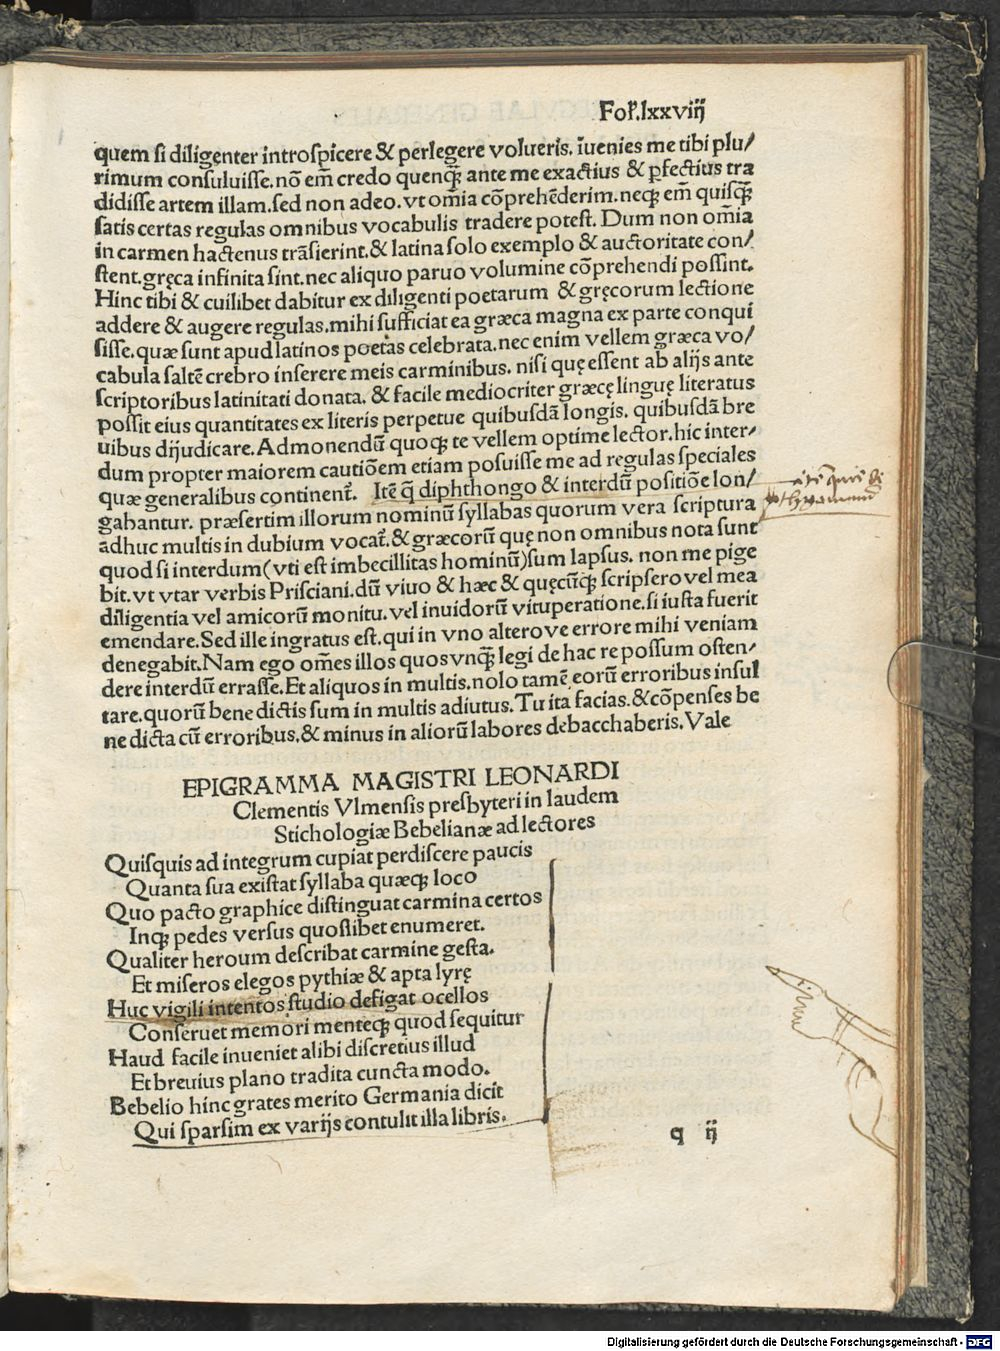 Fol.lxxviij
quem si diligenter introspicere & perlegere volueris. iuenies me tibi plu/
rimum consuluisse. nō em̄ credo quenq̄ ante me exactius & ꝑfectius tra
didisse artem illam. sed non adeo. vt om̄ia cōprehēderim. neqꝫ em̄ quisq̄
satis certas regulas omnibus vocabulis tradere potest. Dum non om̄ia
in carmen hactenus trāsierint. & latina solo exemplo & auctoritate con/
stent. gręca infinita sint. nec aliquo paruo volumine cōprehendi possint.
Hinc tibi & cuilibet dabitur ex diligenti poetarum & gręcorum lectione
addere & augere regulas. mihi sufficiat ea græca magna ex parte conqui
sisse. quæ sunt apud latinos poetas celebrata. nec enim vellem græca vo/
cabula saltē crebro inserere meis carminibus. nisi quę essent ab alijs ante
scriptoribus latinitati donata. & facile mediocriter græcę linguę literatus
possit eius quantitates ex literis perpetue quibusdā longis. quibusdā bre
uibus dijudicare. Admonendū quoqꝫ te vellem optime lector. hic inter/
dum propter maiorem cautiōem etiam posuisse me ad regulas speciales
quæ generalibus continent̄. Itē q̄ diphthongo & interdū positiōe lon/
gabantur. præsertim illorum nominū syllabas quorum vera scriptura
adhuc multis in dubium vocat̄. & græcorū quę non omnibus nota sunt
quod si interdum (vti est imbecillitas hominū) sum lapsus. non me pige
bit. vt vtar verbis Prisciani. dū viuo & hæc & quęcūqꝫ scripsero vel mea
diligentia vel amicorū monitu. vel inuidorū vituperatione. si iusta fuerit
emendare. Sed ille ingratus est. qui in vno alteroue errore mihi veniam
denegabit. Nam ego om̄es illos quos vnq̄ legi de hac re possum osten/
dere interdū errasse. Et aliquos in multis. nolo tamē eorū erroribus insul
tare. quorū bene dictis sum in multis adiutus. Tu ita facias. & cōpenses be
ne dicta cū erroribus. & minus in aliorū labores debacchaberis. Vale
EPIGRAMMA MAGISTRI LEONARDI
Clementis Vlmensis presbyteri in laudem
Stichologiæ Bebelianæ ad lectores
Quisquis ad integrum cupiat perdiscere paucis
Quanta sua existat syllaba quæqꝫ loco
Quo pacto graphice distinguat carmina certos
Inqꝫ pedes versus quoslibet enumeret.
Qualiter heroum describat carmine gesta.
Et miseros elegos pythiæ & apta lyrę
Huc vigili intentos studio defigat ocellos
Conseruet memori menteqꝫ quod sequitur
Haud facile inueniet alibi discretius illud
Et breuius plano tradita cuncta modo.
Bebelio hinc grates merito Germania dicit
Qui sparsim ex varijs contulit illa libris.
q ij
Digitalisierung gefördert durch die Deutsche Forschungsgemeinschaft - DFG